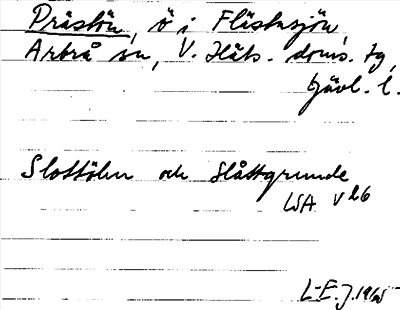 Prästön, ö i Flästasjön,
Arbrå sn, V. Häls. doms. tg,
Gävl. l.
Slottölen och Slåttgrunde
LSA V 26
L-E. J. 1965